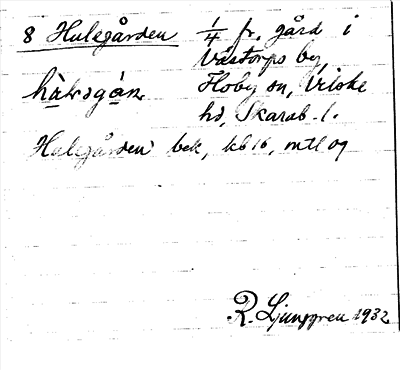 8 Hulegården 1/4 fr. gård i
Västorps by,
Floby sn, Vilske
hd, Skarab. l.
Hulegården bek, kb 16, mtl og
R. Ljunggren 1932